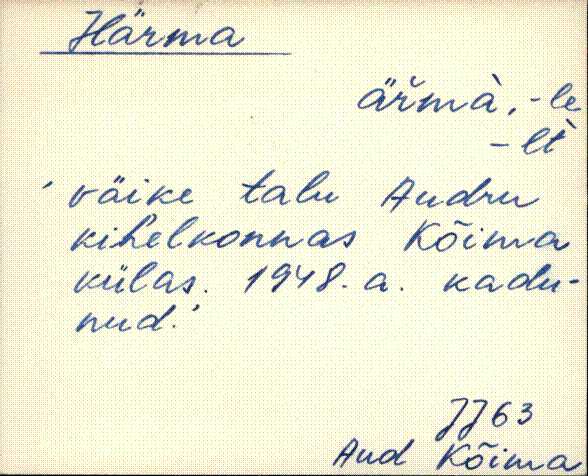 Härma
äřmà, -le
-lt
' väike talu Audru
kihelkonnas Kõima
külas. 1948. a. kadu-
nud.'
JJ 63
Aud Kõima